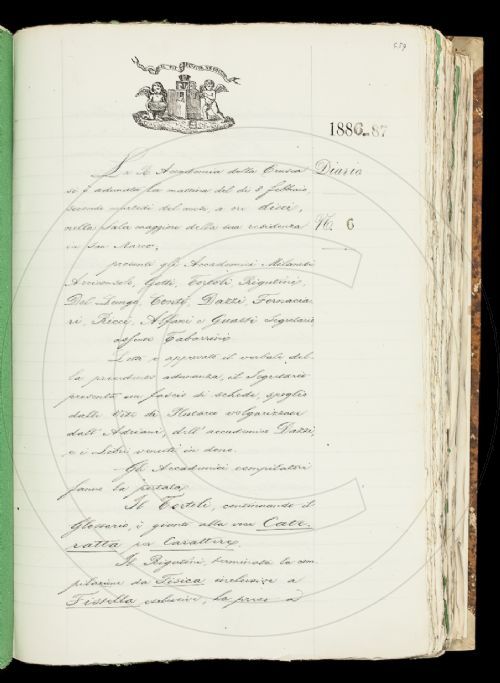 559
IL PIÙ BEL FIOR NE COGLIE
1886-87
Diario
N. 6
La R. Accademia della Crusca
si è adunata la mattina del dì 8 febbraio,
secondo martedì del mese, a ore dieci,
nella sala maggiore della sua residenza
in San Marco;
presenti gli Accademici Milanesi
Arciconsolo, Gotti, Tortoli, Rigutini,
Del Lungo, Conti, Dazzi, Fornacia-
ri, Ricci, Alfani e Guasti Segretario
assente Tabarrini
Letto e approvato il verbale del-
la precedente adunanza, il Segretario
presenta un fascio di schede, spoglio
dalle Vite di Plutarco volgarizzate
dall'Adriani, dell'accademico Dazzi,
e i Libri venuti in dono.
Gli Accademici compilatori
fanno la portata,
Il Tortoli, continuando il
Glossario, è giunto alla voce Cate-
ratta per Carattere.
Il Rigutini, terminata la com-
pilazione da Fisica inclusive a
Fistella esclusive, ha preso a